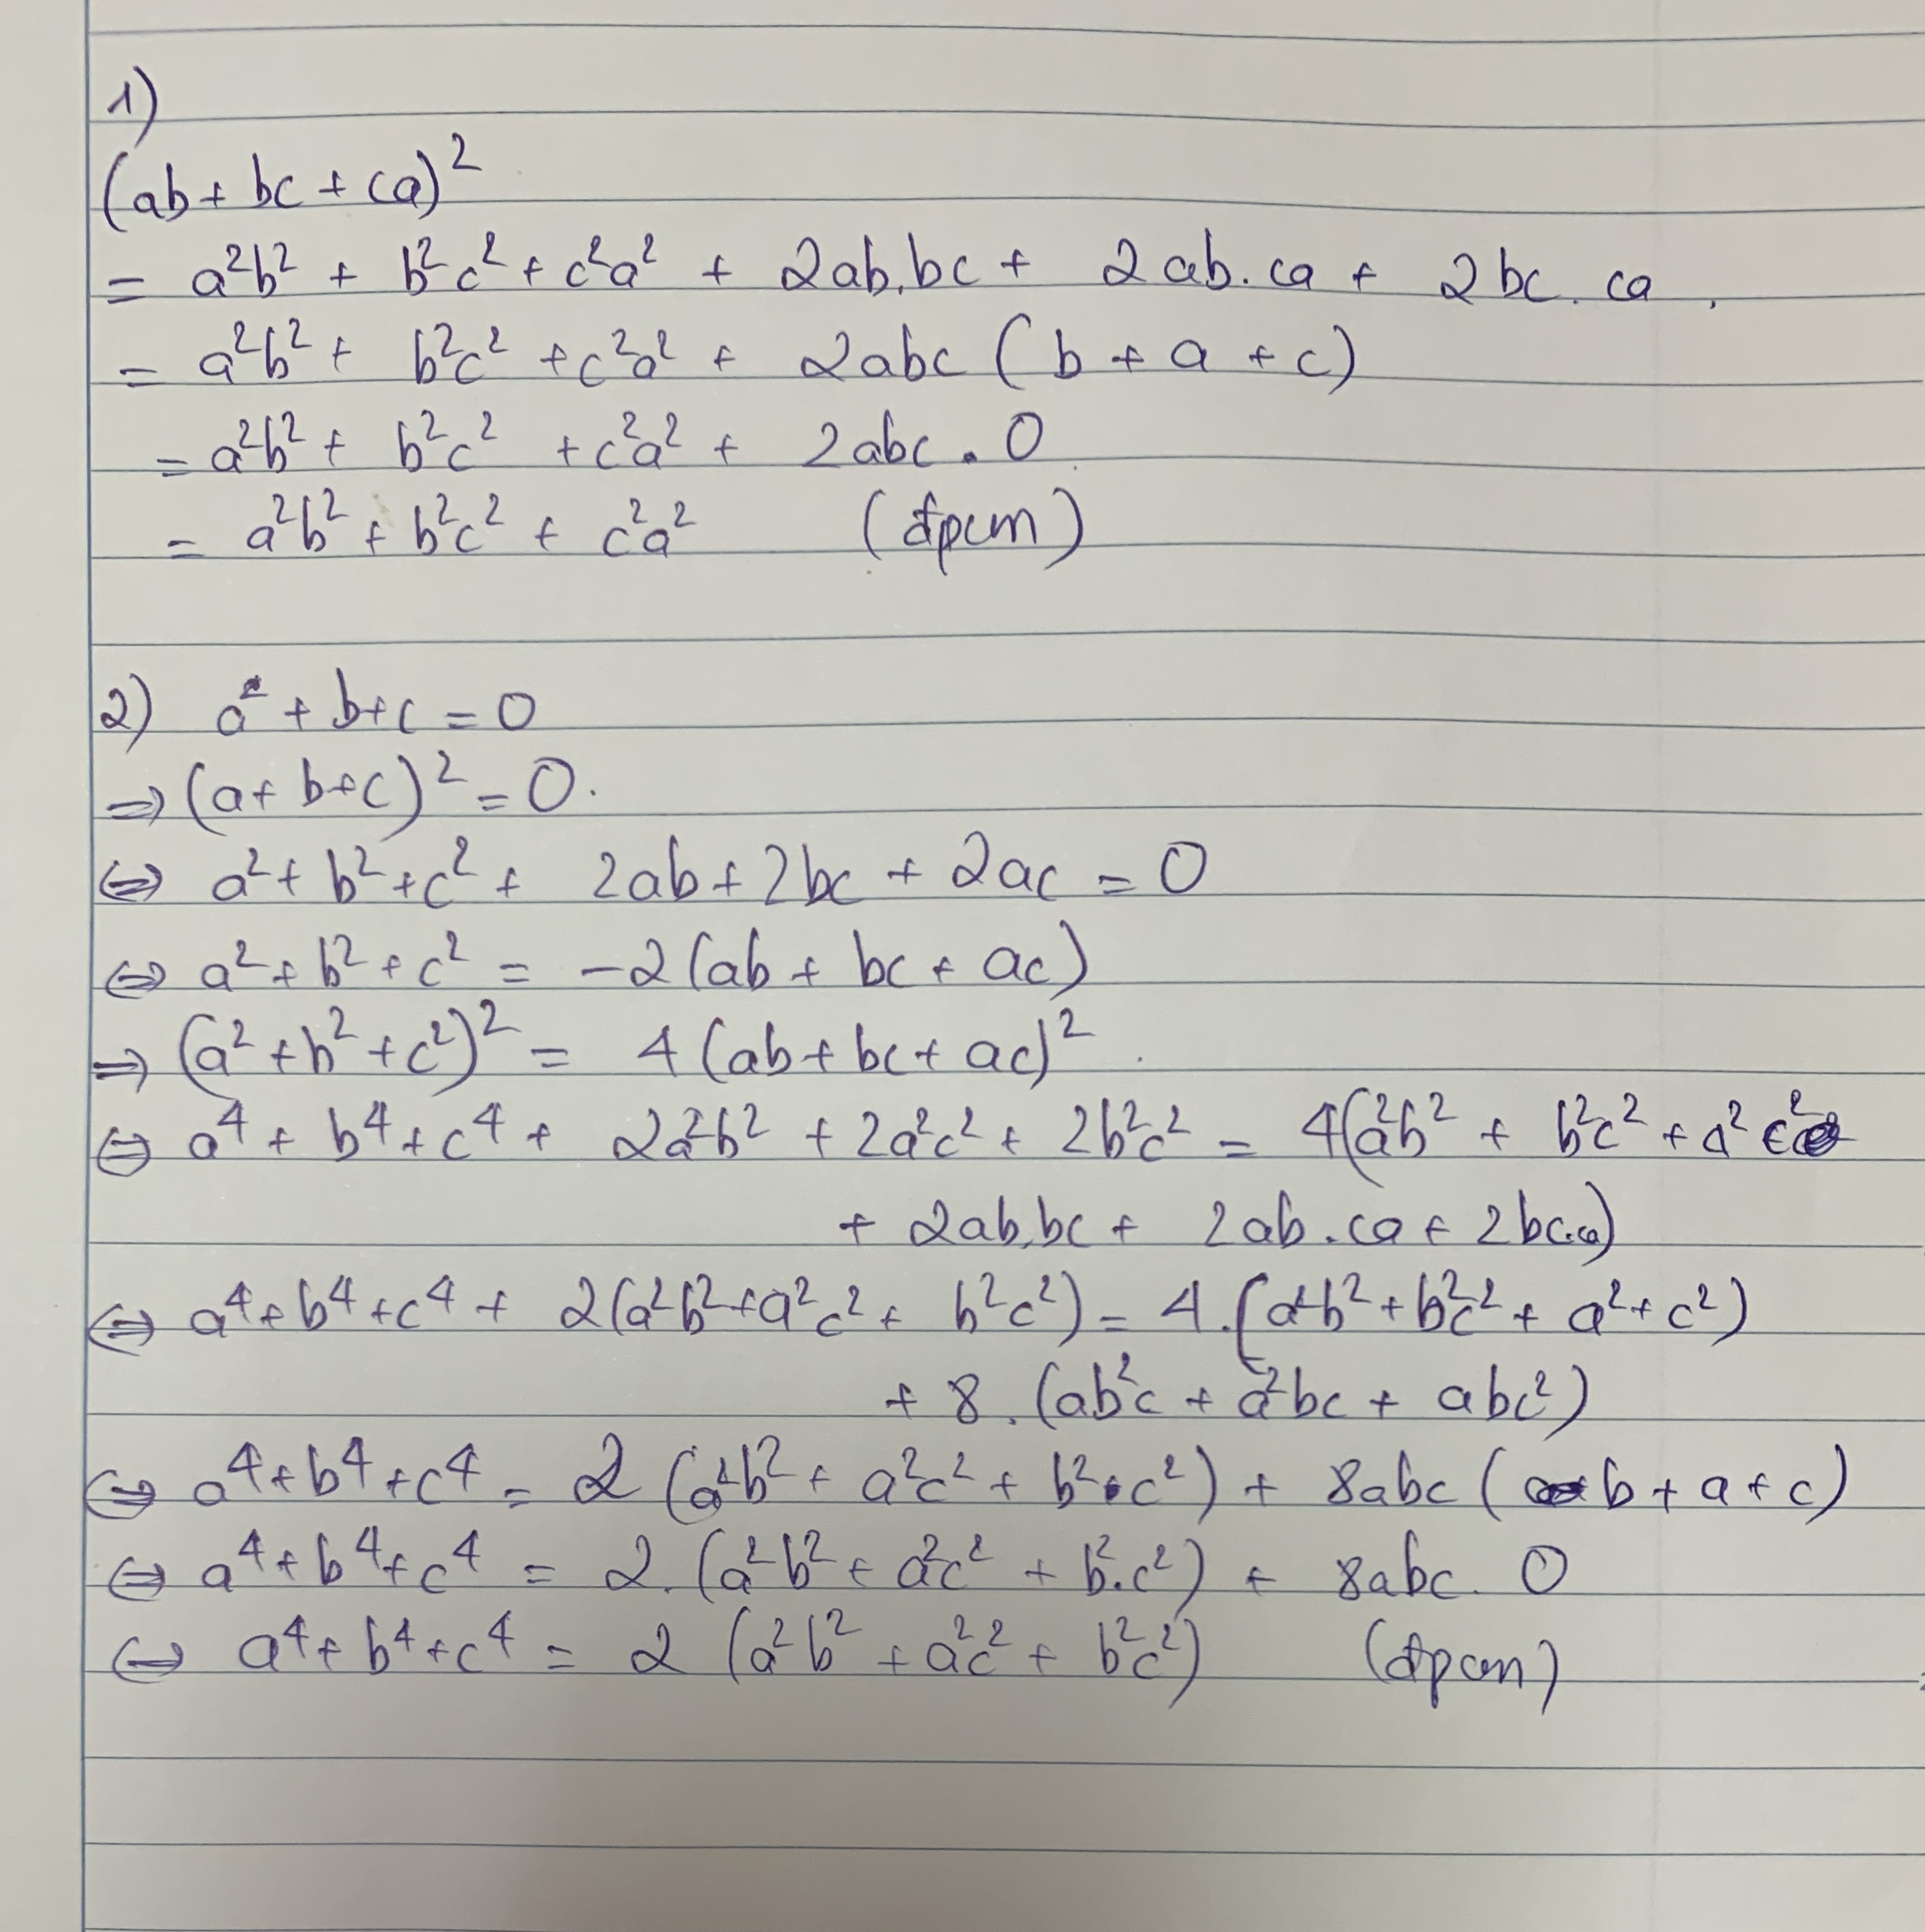 1)
(ab + bc + ca)²
= a²b² + b²c² + c²a² + 2ab.bc + 2ab.ca + 2bc.ca.
= a²b² + b²c² + c²a² + 2abc (b + a + c)
= a²b² + b²c² + c²a² + 2abc . 0
= a²b² + b²c² + c²a² (đpcm)
2) a + b+c = 0
⇒ (a+ b+c)² = 0.
⇔ a² + b² + c² + 2ab + 2bc + 2ac = 0
⇔ a² + b² + c² = -2(ab + bc + ac)
⇒ (a² + b² + c²)² = 4 (ab + bc + ac)².
⇔ a⁴ + b⁴ + c⁴ + 2a²b² + 2a²c² + 2b²c² = 4(a²b² + b²c² + a²c²
+ 2ab.bc + 2ab.ca + 2bc.ca)
⇔ a⁴ + b⁴ + c⁴ + 2(a²b² + a²c² + b²c²) = 4.(a²b² + b²c² + a²+c²)
+ 8.(ab²c + a²bc + abc²)
⇔ a⁴ + b⁴ + c⁴ = 2 (a²b² + a²c² + b².c²) + 8abc (b + a + c)
⇔ a⁴ + b⁴ + c⁴ = 2.(a²b² + a²c² + b².c²) + 8abc. 0
⇔ a⁴ + b⁴ + c⁴ = 2 (a²b² + a²c² + b²c²) (đpcm)